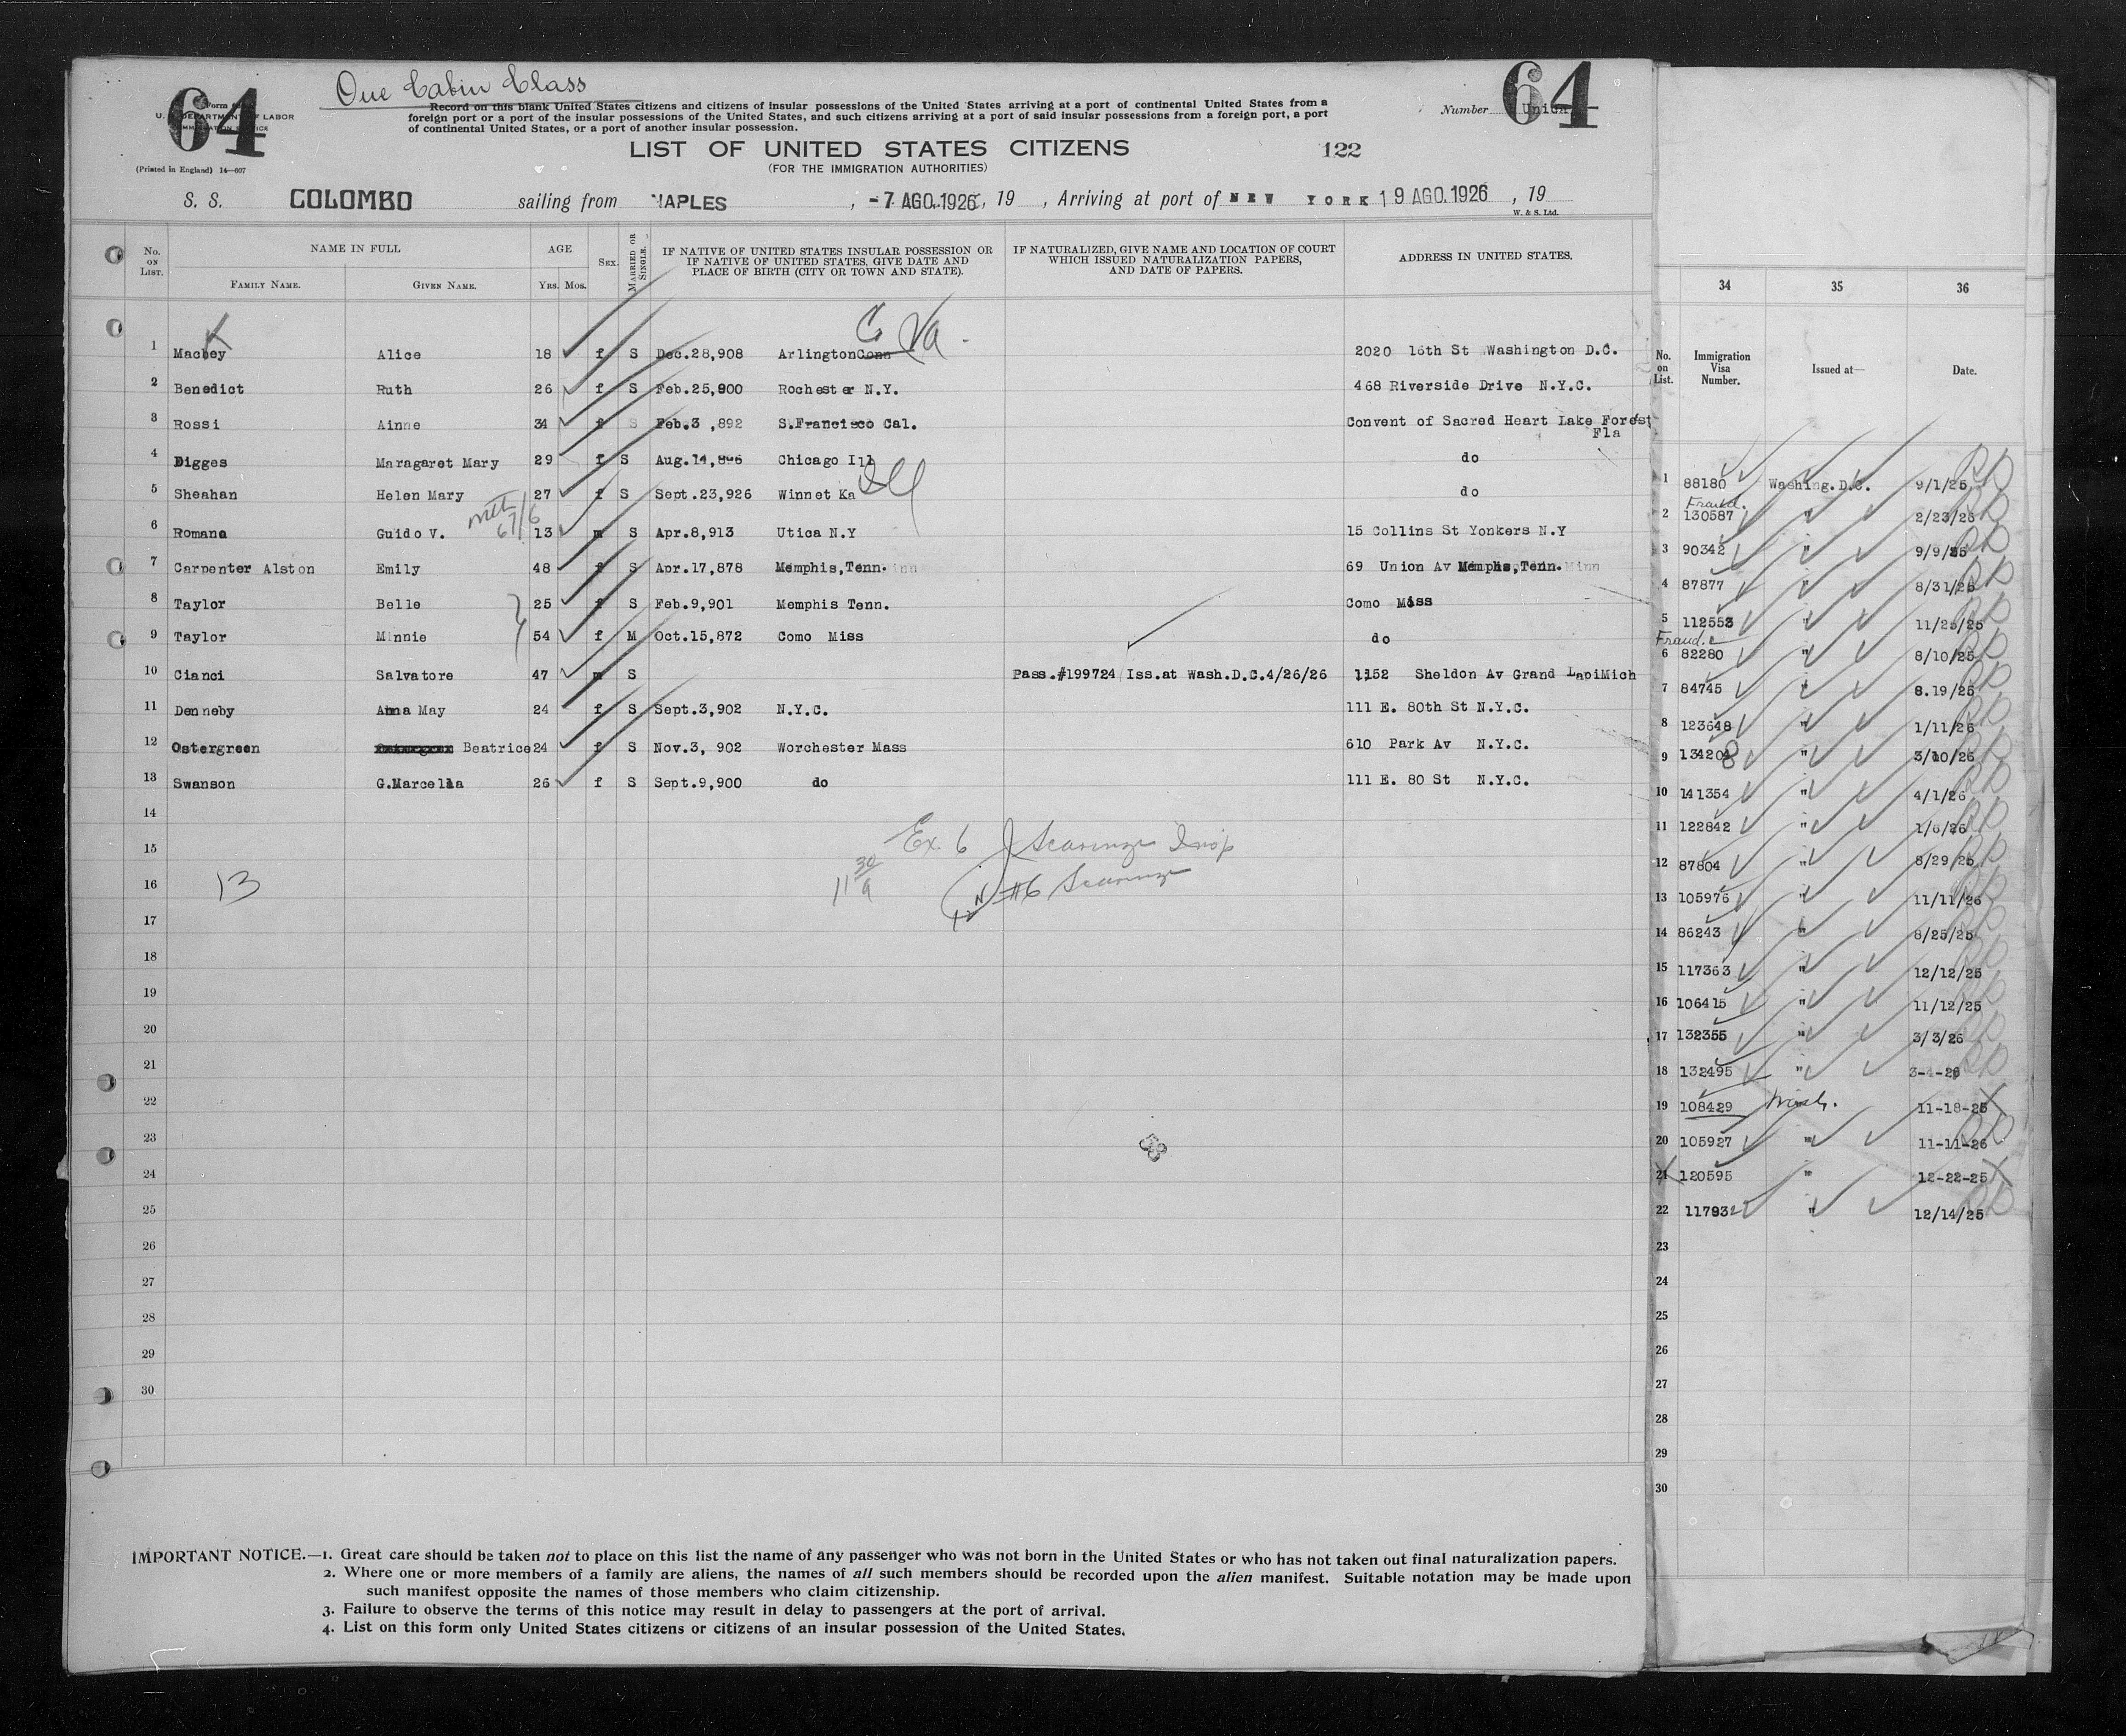 64
One Cabin Class
64
Form
U. DEPARTMENT OF LABOR
(Printed in England) 14—607
Record on this blank United States citizens and citizens of insular possessions of the United States arriving at a port of continental United States from a
foreign port or a port of the insular possessions of the United States, and such citizens arriving at a port of said insular possessions from a foreign port, a port
of continental United States, or a port of another insular possession.
Number
LIST OF UNITED STATES CITIZENS
122
(FOR THE IMMIGRATION AUTHORITIES)
S. S. COLOMBO sailing from NAPLES , -7 AGO.1926, 19 , Arriving at port of NEW YORK 19 AGO.1926 , 19
W. & S. Ltd.
No. ON LIST. NAME IN FULL AGE SEX. MARRIED OR SINGLE. IF NATIVE OF UNITED STATES INSULAR POSSESSION OR IF NATIVE OF UNITED STATES, GIVE DATE AND PLACE OF BIRTH (CITY OR TOWN AND STATE). IF NATURALIZED, GIVE NAME AND LOCATION OF COURT WHICH ISSUED NATURALIZATION PAPERS, AND DATE OF PAPERS. ADDRESS IN UNITED STATES.
FAMILY NAME. GIVEN NAME. YRS. MOS.
K
C Va.
1 Macbey Alice 18 f S Dec.28,908 Arlington Conn 2020 16th St Washington D.C.
2 Benedict Ruth 26 f S Feb.25,900 Rochester N.Y. 468 Riverside Drive N.Y.C.
3 Rossi Ainne 34 f S Feb.3 ,892 S.Francisco Cal. Convent of Sacred Heart Lake Forest
Fla
4 Digges Maragaret Mary 29 f S Aug.14,896 Chicago Ill do
5 Sheahan Helen Mary 27 f S Sept.23,926 Winnet Ka Ill do
67/6
6 Romana Guido V. 13 m S Apr.8,913 Utica N.Y 15 Collins St Yonkers N.Y
7 Carpenter Alston Emily 48 f S Apr.17,878 Memphis,Tenn. 69 Union Av Memphis,Tenn.
8 Taylor Belle 25 f S Feb.9,901 Memphis Tenn. Como Miss
9 Taylor Minnie 54 f M Oct.15,872 Como Miss do
10 Cianci Salvatore 47 m S Pass.#199724 Iss.at Wash.D.C.4/26/26 1152 Sheldon Av Grand LapiMich
11 Denneby Anna May 24 f S Sept.3,902 N.Y.C. 111 E. 80th St N.Y.C.
12 Ostergreen Beatrice 24 f S Nov.3, 902 Worchester Mass 610 Park Av N.Y.C.
13 Swanson G.Marcella 26 f S Sept.9,900 do 111 E. 80 St N.Y.C.
14
15 Ex 6 J Scarinze Insp
16 13 11 30/a #6 Scarinze
17
18
19
20
21
22
23
24
25
26
27
28
29
30
IMPORTANT NOTICE.—1. Great care should be taken not to place on this list the name of any passenger who was not born in the United States or who has not taken out final naturalization papers.
2. Where one or more members of a family are aliens, the names of all such members should be recorded upon the alien manifest. Suitable notation may be made upon
such manifest opposite the names of those members who claim citizenship.
3. Failure to observe the terms of this notice may result in delay to passengers at the port of arrival.
4. List on this form only United States citizens or citizens of an insular possession of the United States.
34 35 36
No. on List. Immigration Visa Number. Issued at— Date.
1 88180 Washing.D.C. 9/1/25
2 130587 " 2/23/26
3 90342 " 9/9/25
4 87877 " 8/31/25
5 112553 " 11/25/25
6 82280 " 8/10/25
7 84745 " 8.19/25
8 123648 " 1/11/26
9 134208 " 3/10/26
10 141354 " 4/1/26
11 122842 " 1/6/26
12 87804 " 8/29/25
13 105976 " 11/11/26
14 86243 " 8/25/25
15 117363 " 12/12/25
16 106415 " 11/12/25
17 132355 " 3/3/26
18 132495 " 3-4-26
19 108429 Wash. 11-18-25
20 105927 " 11-11-26
21 120595 " 12-22-25
22 117932 " 12/14/25
23
24
25
26
27
28
29
30